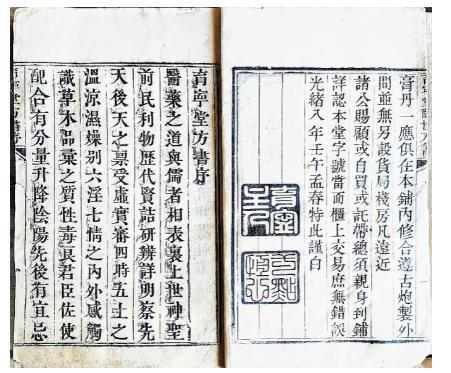 膏丹一應俱在本鋪內修合遵古炮製外
間並無另設貨局棧房凡遠近
諸公賜顧或自買或託帶總須親身到鋪
詳認本堂字號當面櫃上交易庶無錯誤
光緒八年壬午孟春特此謹白
育寧堂方書序
醫藥之道與儒者相表裏上世神聖
前民利物歷代賢詰研辨詳明察先
天後天之稟受虛實審四時五土之
溫涼濕燥别六淫七情之內外感觸
識草木品彙之質性毒良君臣佐使
配合有分量升降陰陽先後有宜忌